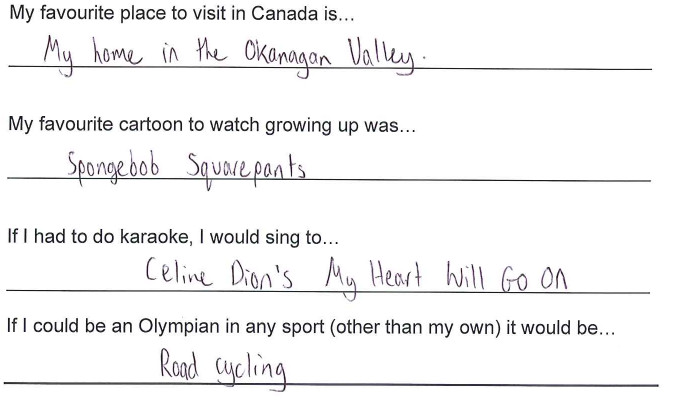 My favourite place to visit in Canada is…
My home in the Okanagan Valley.
My favourite cartoon to watch growing up was…
Spongebob Squarepants
If I had to do karaoke, I would sing to…
Celine Dion's My Heart Will Go On
If I could be an Olympian in any sport (other than my own) it would be…
Road cycling